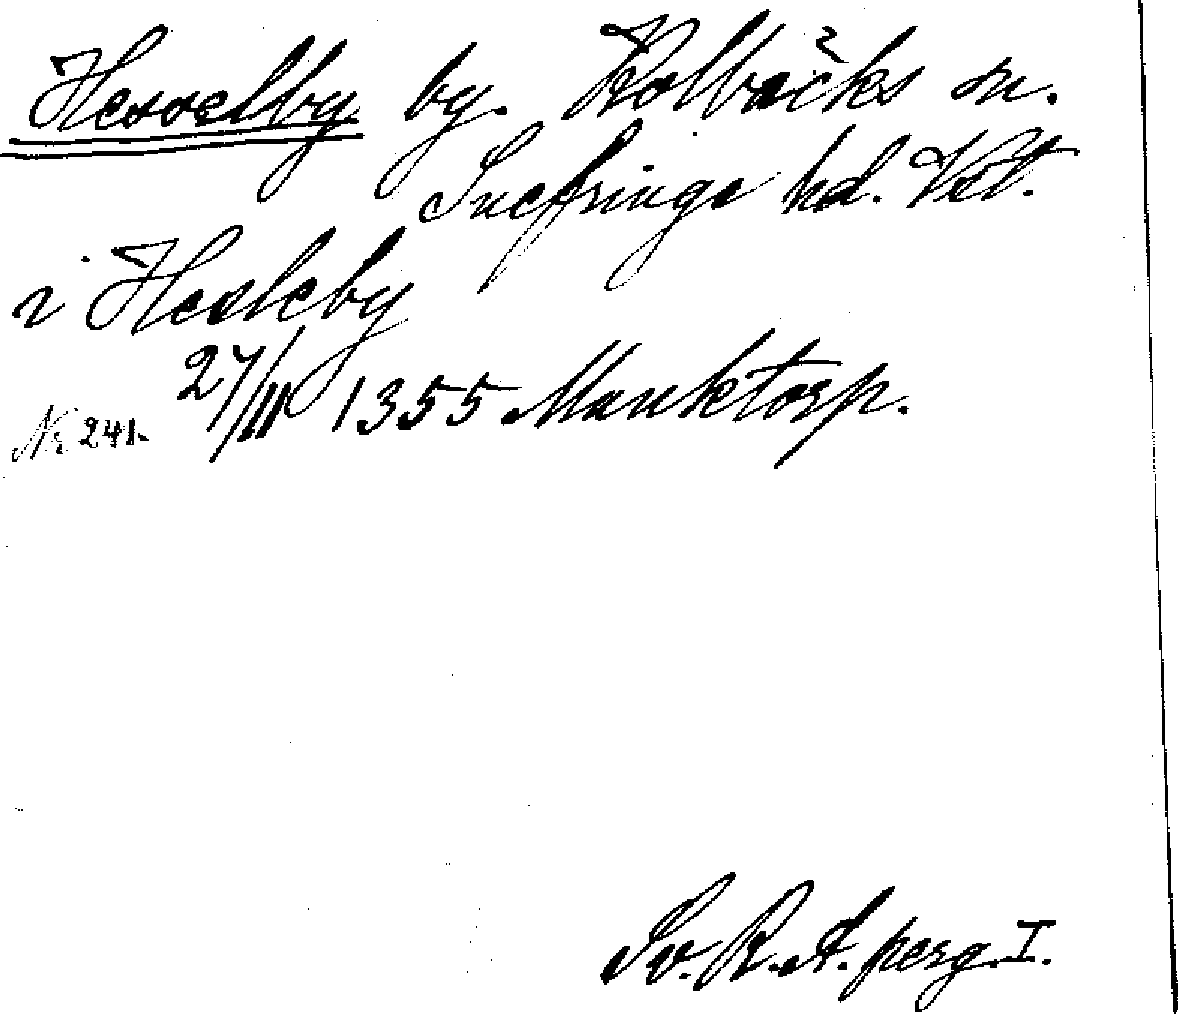 Hesselby by. Kolbäcks sn.
Snefringe hd. Vtl.
i Hesleby
27/III 1355 Munktorp.
Nr 241.
Sv. R. A. perg. I.